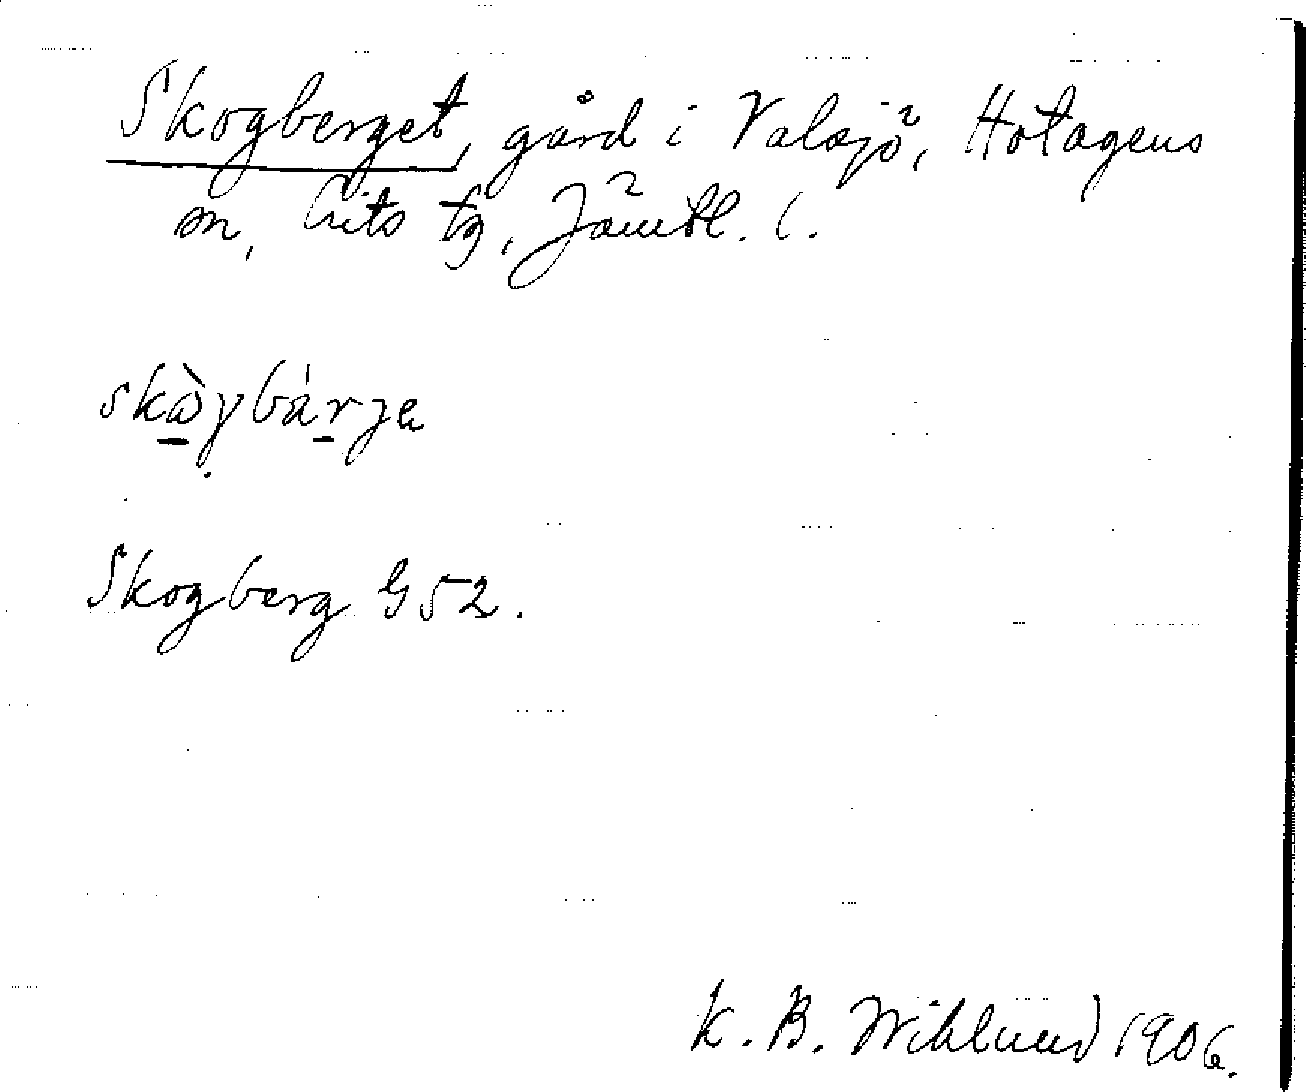 Skogberget, gård i Valsjö, Hotagens
sn, Lits tg, Jämtl. l.
skòγbárje
Skogberg G52.
K. B. Wiklund 1906.